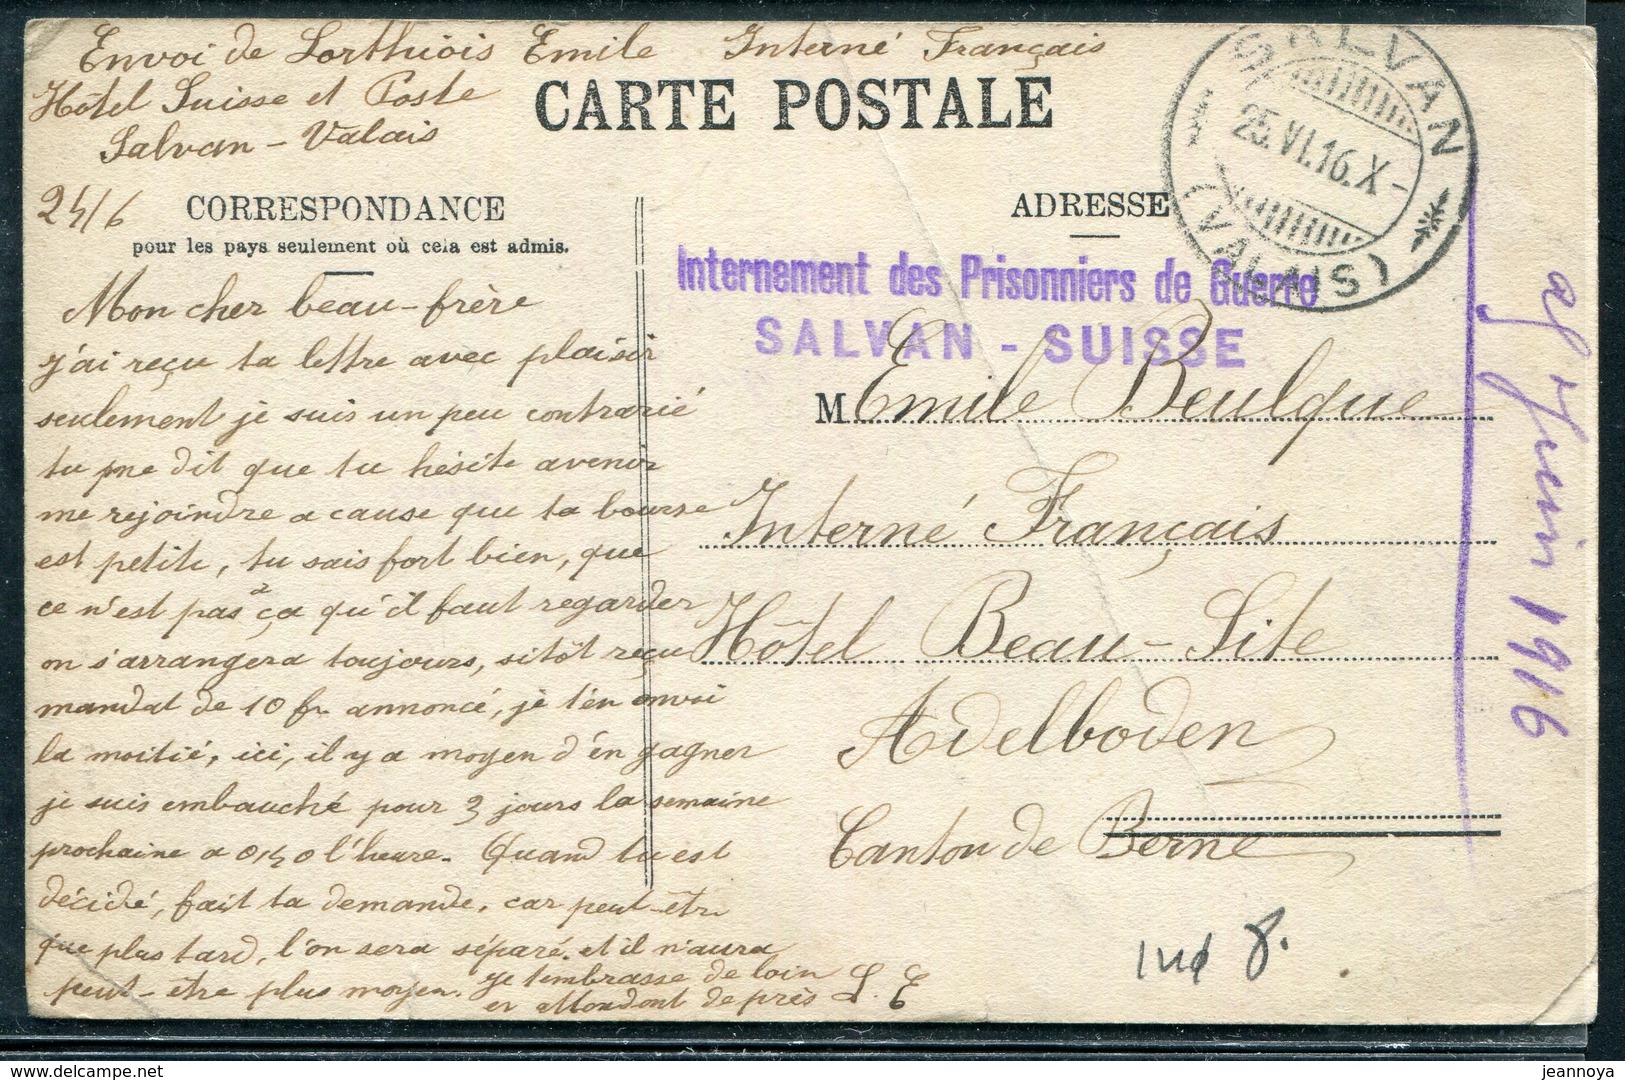 Envoi de Lorthiois Emile Interné Français
Hôtel Suisse et Poste
Salvan - Valais
24/6
CARTE POSTALE
CORRESPONDANCE
pour les pays seulement où cela est admis.
Mon cher beau-frère
j'ai reçu ta lettre avec plaisir
seulement je suis un peu contrarié
tu me dit que tu hésite avenir
me rejoindre a cause que ta bourse
est petite, tu sais fort bien, que
ce n'est pas a ça qu'il faut regarder
on s'arrangera toujours, sitôt reçu
mandat de 10 fr annoncé, je t'en envoi
la moitié, ici, il y a moyen d'en gagner
je suis embauché pour 3 jours la semaine
prochaine a 0,40 l'heure. Quand tu est
décidé, fait ta demande, car peut-être
que plus tard, l'on sera séparé. et il n'aura
peut-être plus moyen. Je t'embrasse de loin
en attendant de près L. E
ADRESSE
SALVAN
25.VI.16.X-
(VALAIS)
Internement des Prisonniers de Guerre
SALVAN - SUISSE
M Emile Beulque
Interné Français
Hôtel Beau-Site
Adelboden
Canton de Berne
Juin 1916
8.
jeannoya